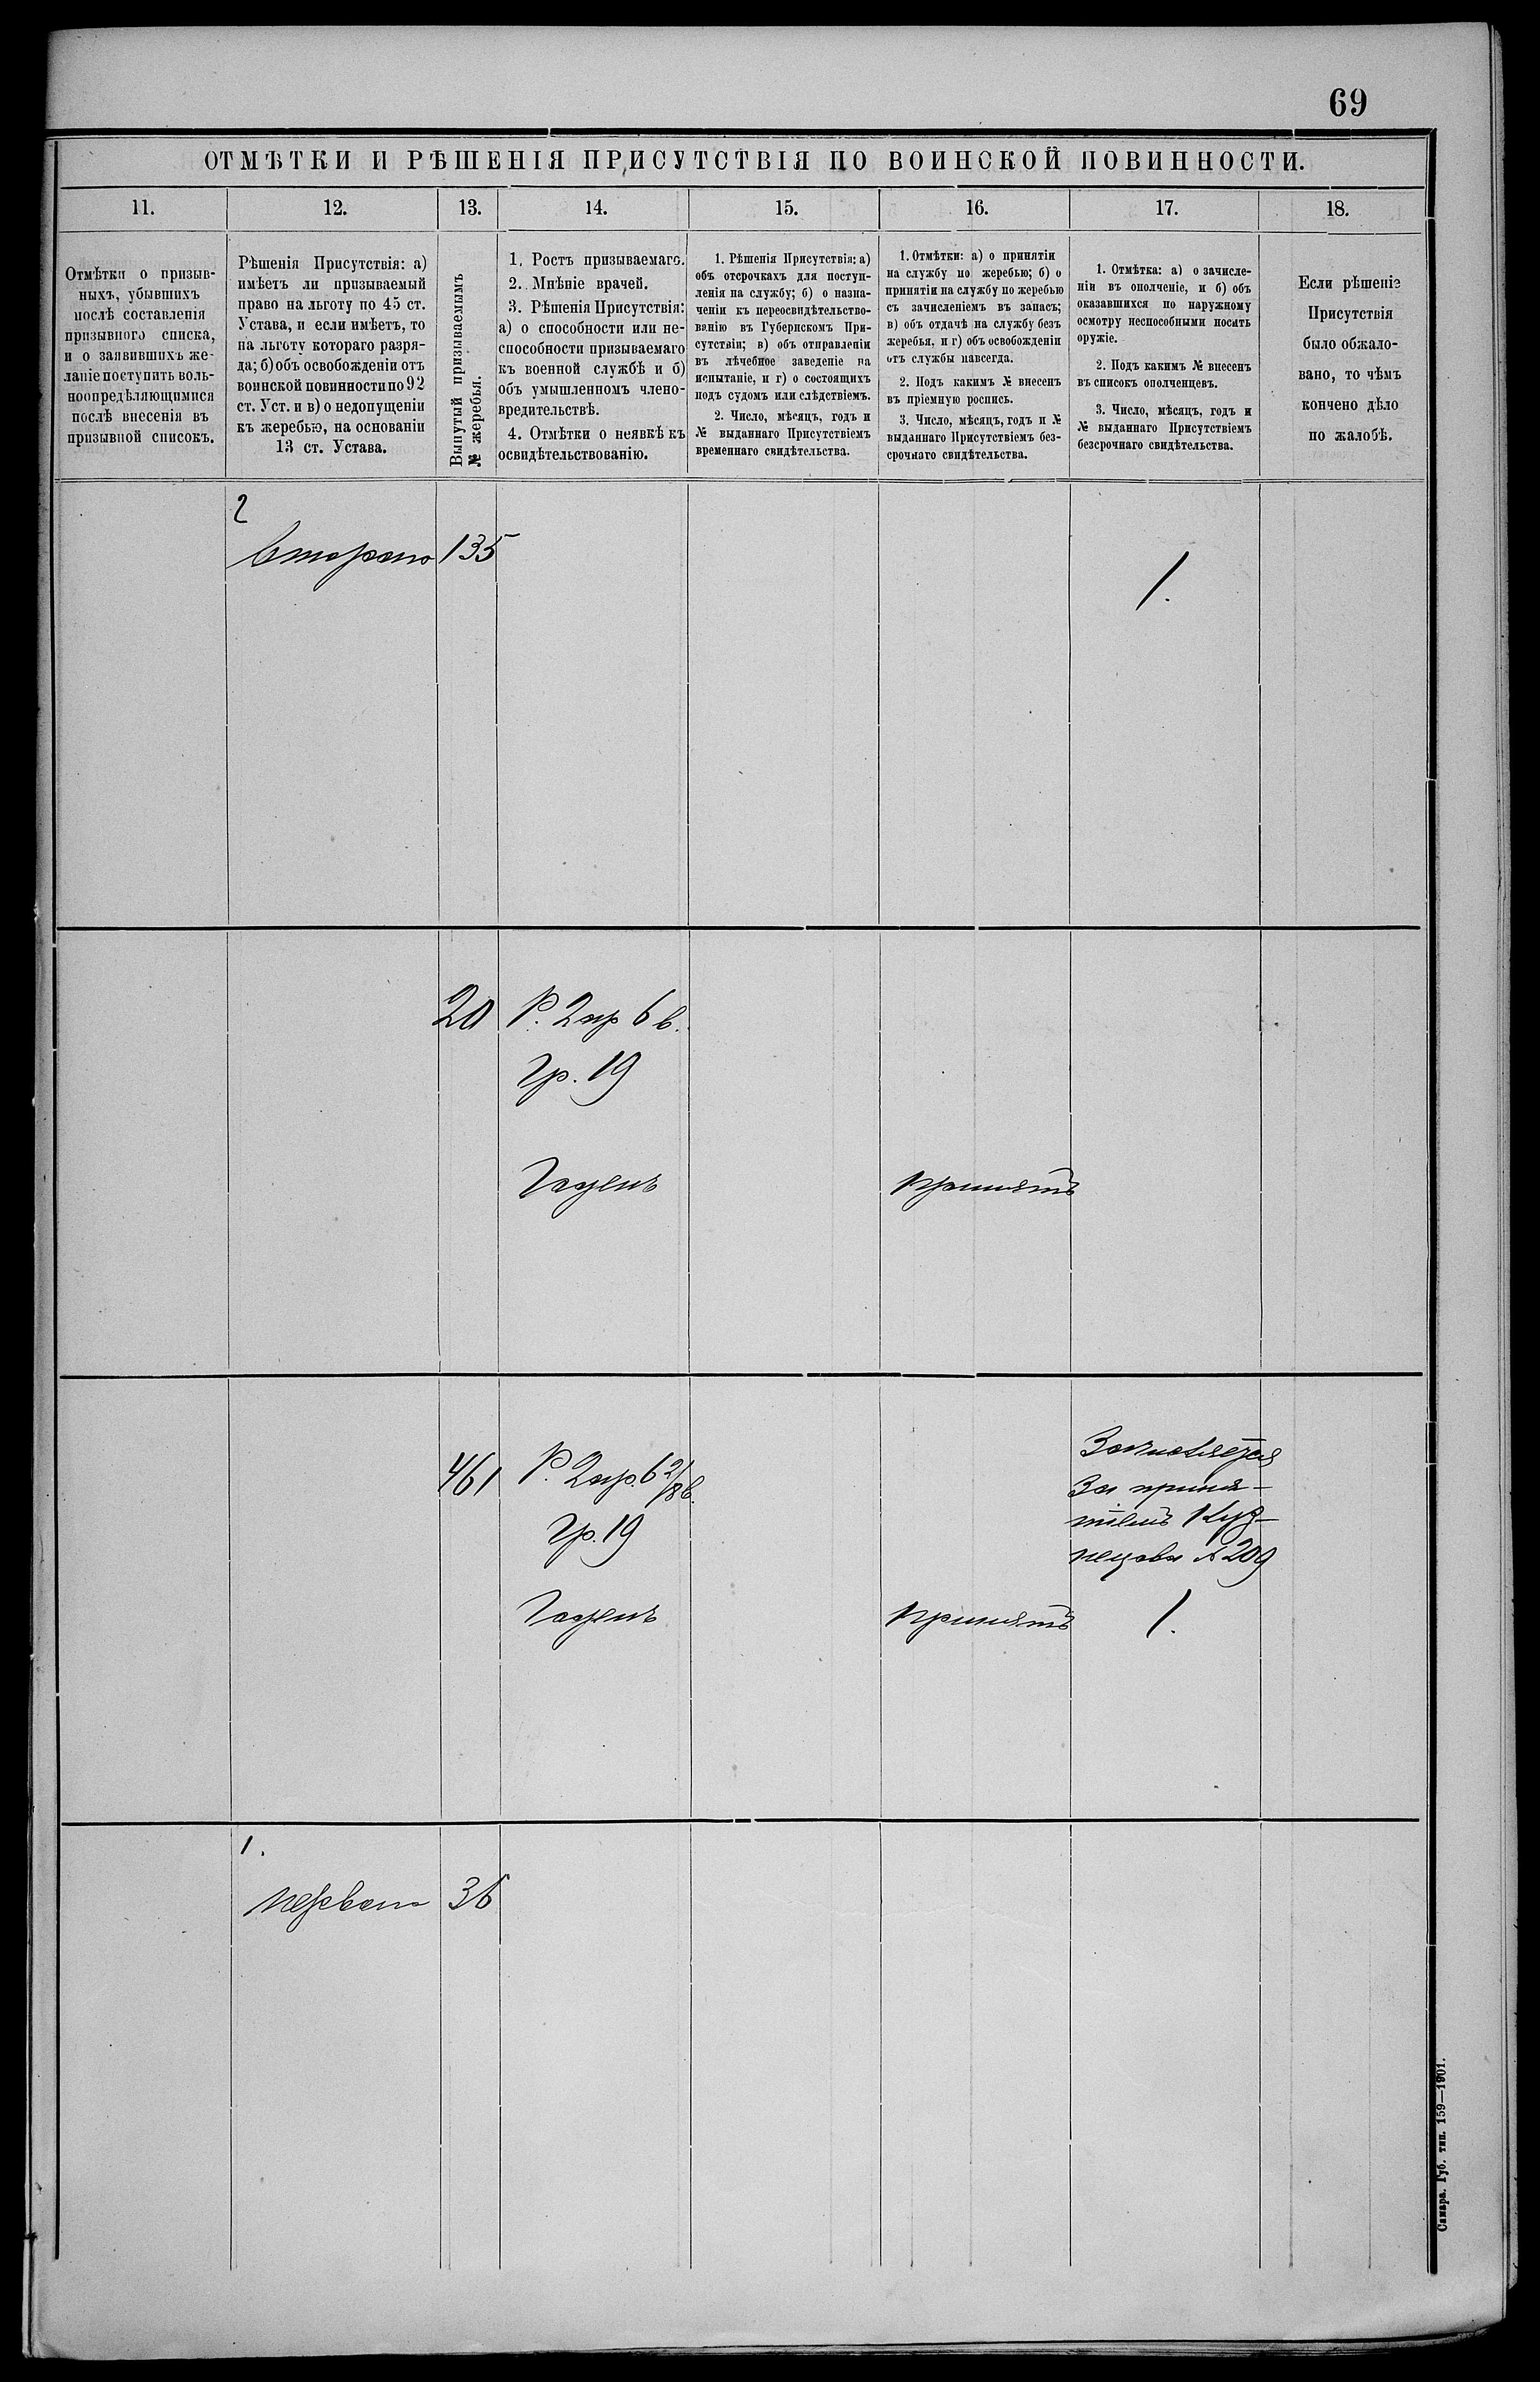 69
ОТМѢТКИ И РѢШЕНІЯ ПРИСУТСТВІЯ ПО ВОИНСКОЙ ПОВИННОСТИ.
11.
12.
13.
14.
15.
16.
17.
18.
Отмѣтки о призыв-
ныхъ, убывшихъ
послѣ составленія
призывного списка,
и о заявившихъ же-
ланіе поступить воль-
ноопредѣляющимися
послѣ внесенія въ
призывной списокъ.
Рѣшенія Присутствія: а)
имѣетъ ли призываемый
право на льготу по 45 ст.
Устава, и если имѣетъ, то
на льготу котораго разря-
да; б) объ освобожденіи отъ
воинской повинности по 92
ст. Уст. и в) о недопущеніи
къ жеребью, на основаніи
13 ст. Устава.
Вынутый призываемымъ
№ жеребья.
1. Ростъ призываемаго.
2. Мнѣніе врачей.
3. Рѣшенія Присутствія:
а) о способности или не-
способности призываемаго
къ военной службѣ и б)
объ умышленномъ члено-
вредительствѣ.
4. Отмѣтки о неявкѣ къ
освидѣтельствованію.
1. Рѣшенія Присутствія: а)
объ отсрочкахъ для поступ-
ленія на службу; б) о назна-
ченіи къ переосвидѣтельство-
ванію въ Губернскомъ При-
сутствіи; в) объ отправленіи
въ лѣчебное заведеніе на
испытаніе, и г) о состоящихъ
подъ судомъ или слѣдствіемъ.
2. Число, мѣсяцъ, годъ и
№ выданнаго Присутствіемъ
временнаго свидѣтельства.
1. Отмѣтки: а) о принятіи
на службу по жеребью; б) о
принятіи на службу по жеребью
съ зачисленіемъ въ запасъ;
в) объ отдачѣ на службу безъ
жеребья, и г) объ освобожденіи
отъ службы навсегда.
2. Подъ какимъ № внесенъ
въ пріемную роспись.
3. Число, мѣсяцъ, годъ и №
выданнаго Присутствіемъ без-
срочнаго свидѣтельства.
1. Отмѣтка: а) о зачисле-
ніи въ ополченіе, и б) объ
оказавшихся по наружному
осмотру неспособными носить
оружіе.
2. Подъ какимъ № внесенъ
въ списокъ ополченцевъ.
3. Число, мѣсяцъ, годъ и
№ выданнаго Присутствіемъ
безсрочнаго свидѣтельства.
Если рѣшеніе
Присутствія
было обжало-
вано, то чѣмъ
кончено дѣло
по жалобѣ.
2
второго 135
1.
20 Р. 2 ар 6 в.
Гр. 19
Годенъ принятъ
461 Р. 2 ар. 6 2/8 в.
Гр. 19
Годенъ принятъ
Зачисляется
за приня-
тіемъ Куз-
нецова № 209
1.
1.
первого 36
Самара. Губ. тип. 159—1901.